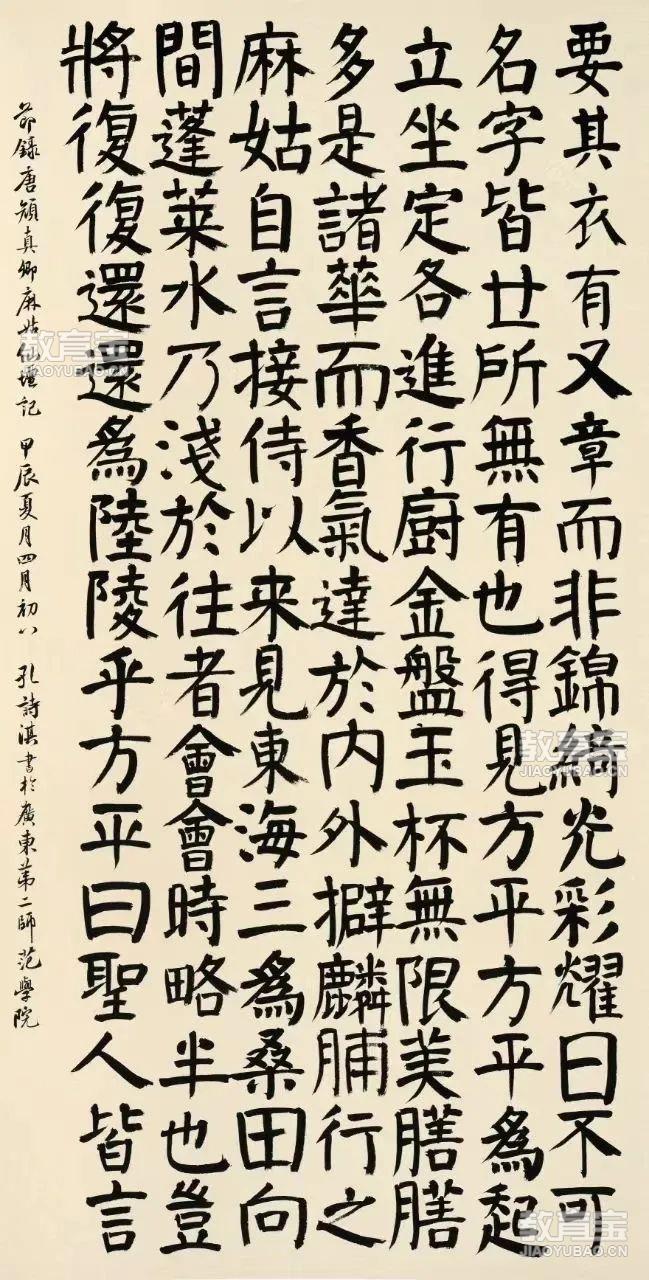 要其衣有又章而非錦綺光彩耀曰不可
名字皆世所無有也得見方平方平為起
立坐定各進行廚金盤玉杯無限美膳膳
多是諸華而香氣達於內外擗麟脯行之
麻姑自言接侍以来見東海三為桑田向
間蓬萊水乃淺於往者會會時略半也豈
將復復還還為陸陵乎方平曰聖人皆言
節錄唐顏真卿麻姑仙壇記 甲辰夏月四月初八 孔詩淇書於廣東第二師范學院
教育宝
JIAOYUBAO.CN
教育宝
JIAOYUBAO.CN
教育宝
JIAOYUBAO.CN